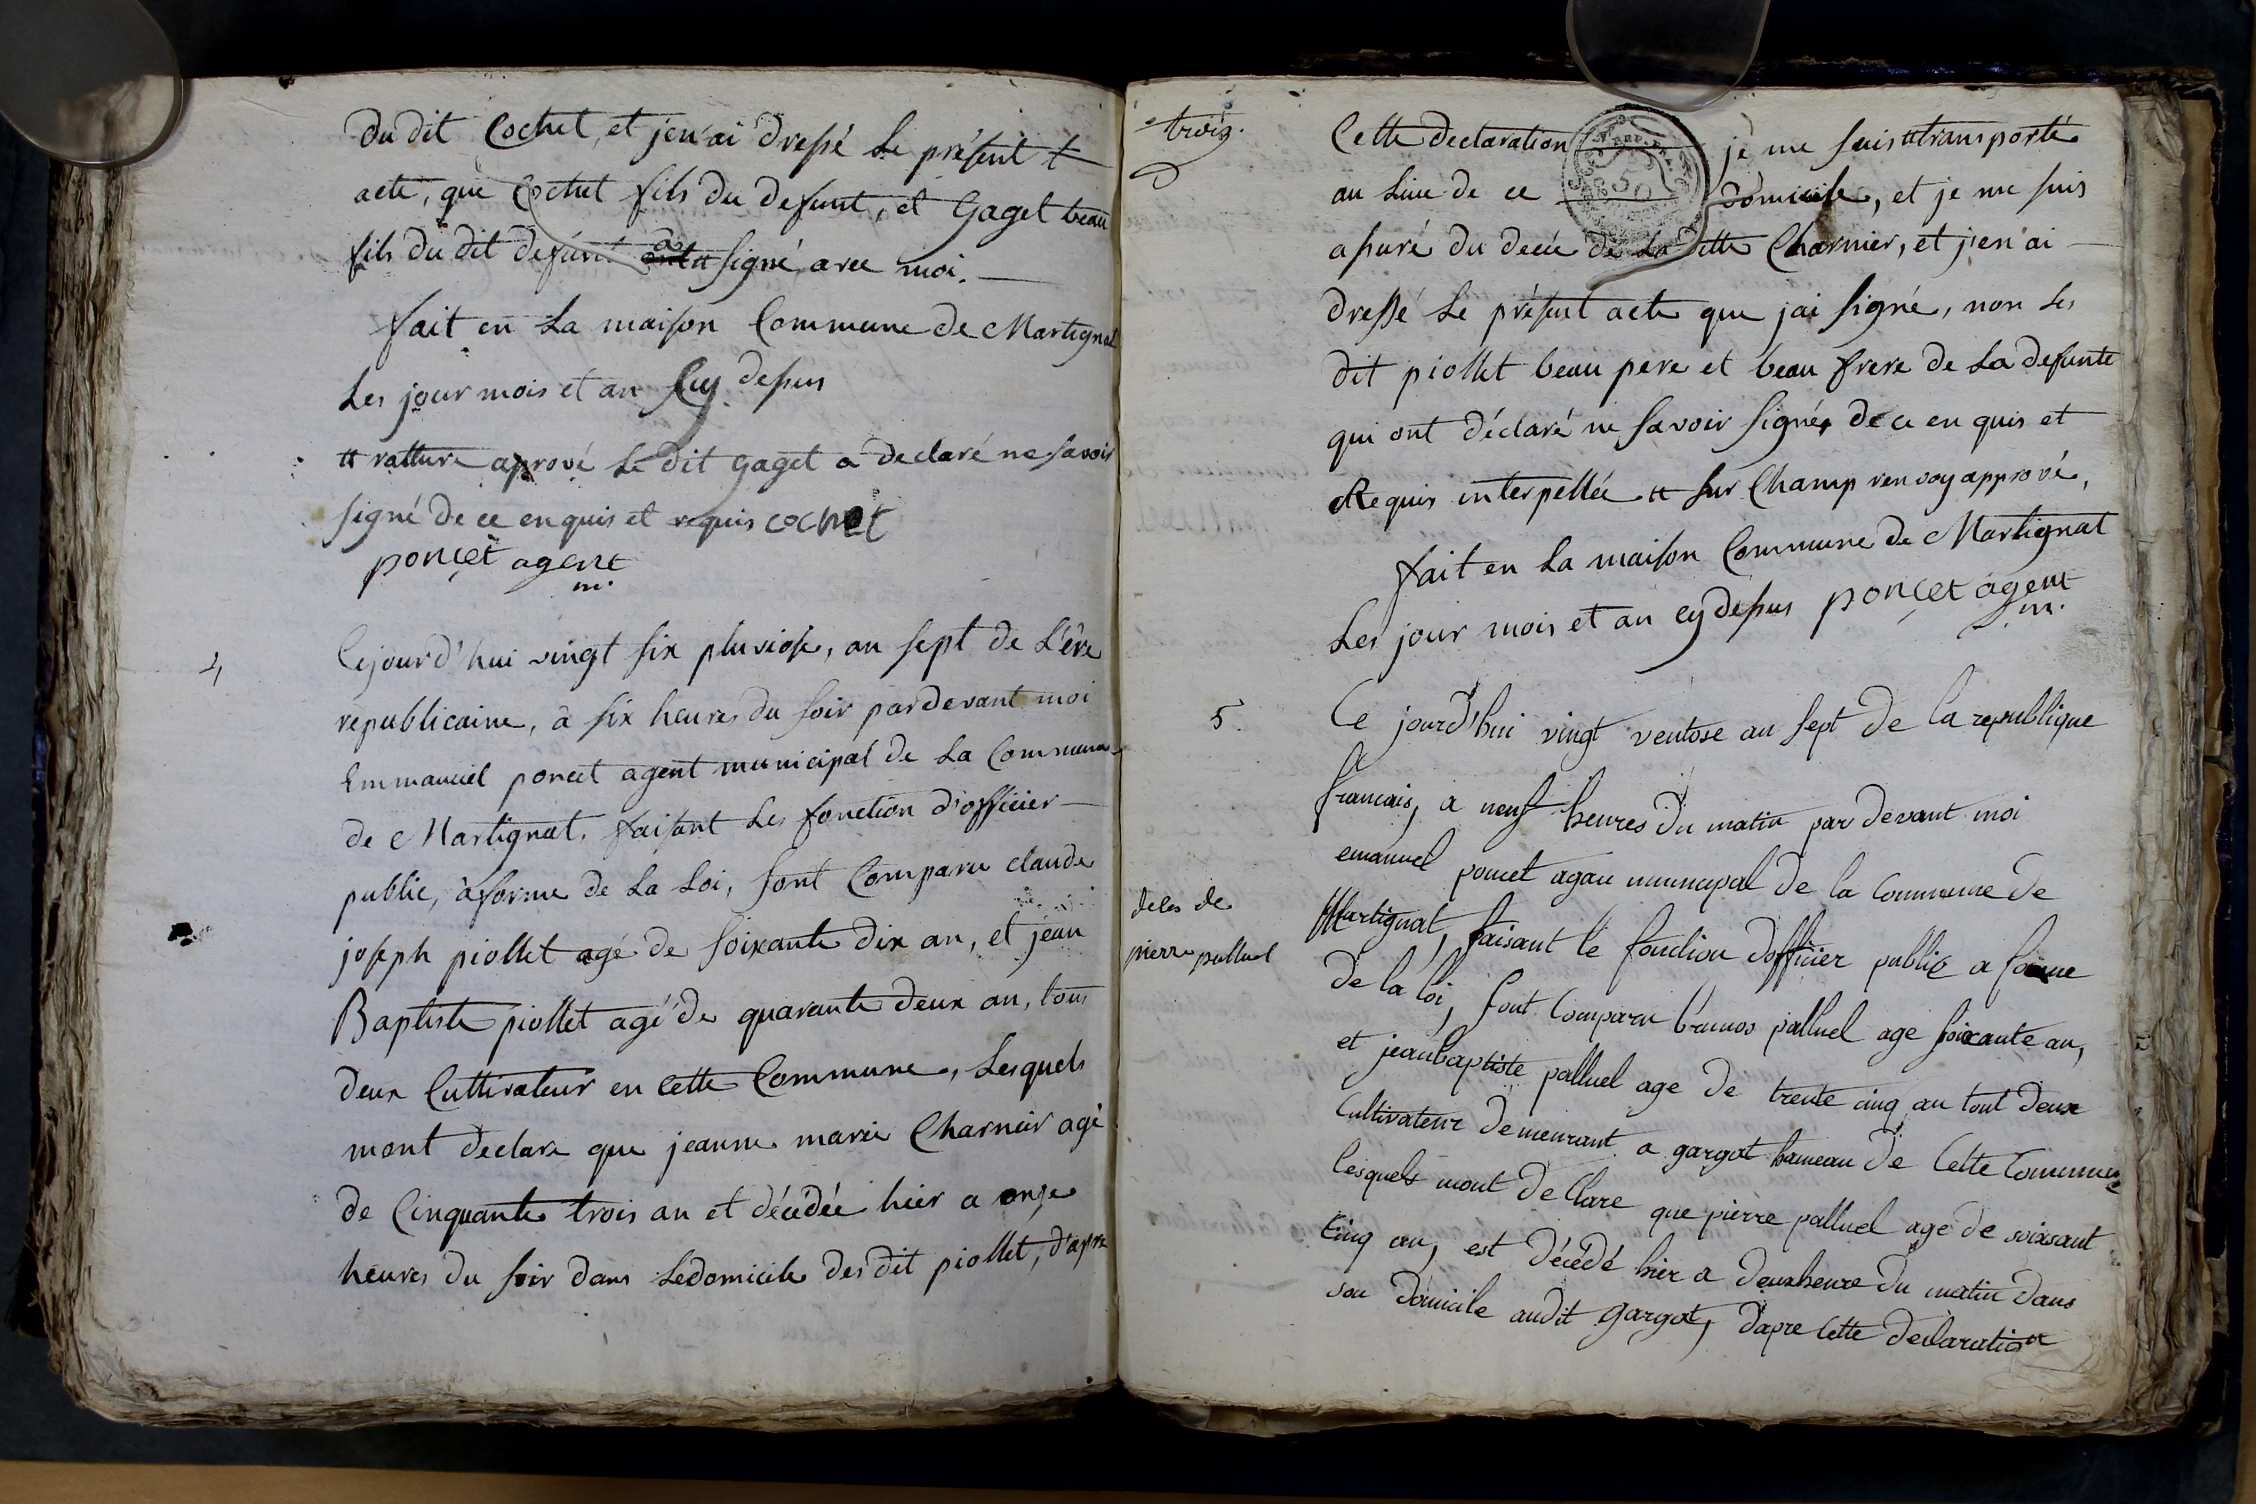 du dit Cochet, et j'en ai dressé Le présent
acte, que Cochet fils du defunt, et Gaget beau
fils du dit defunt a signé avec moi.
fait en La maison Commune de Martignat
Les jour mois et an Cy dessus
# ratture aprové Le dit gaget a declaré ne savoir
signé de ce enquis et requis cochet
poncet agent
m.
4
Cejourd'hui vingt six pluviose, an sept de L'ère
republicaine, à six heures du soir pardevant moi
Emmanuel poncet agent municipal de La Commune
de Martignat, faisant Les fonction d'officier
public, à forme de La Loi, sont Comparu claude
joseph piollet agé de soixante dix an, et jean
Baptiste piollet agé de quarante deux an, tous
deux Cultivateur en Cette Commune, Lesquels
mont declare que jeanne marie Charnier agé
de Cinquante trois an et décédée hier a onze
heures du soir dans Ledomicile desdit piollet, d'apre
trois.
Cette declaration je me suis # transporté
au Lieu de ce domicile, et je me suis
asuré du decé de La ditte Charnier, et j'en ai
dressé Le présent acte que jai signé, non Les
dit piollet beau pere et beau frere de La defunte
qui ont déclaré ne savoir signé, de ce en quis et
Requis interpellée # sur Champ renvoy apprové,
fait en La maison Commune de Martignat
Les jour mois et an cy dessus poncet agent
m.
5.
Ce jourd'hui vingt ventose an sept de la republique
francais, a neuf heures du matin par devant moi
emanuel poncet agan municipal de la Commune de
deces de
pierre palluel
Martignat, faisant le fonction dofficier public a forme
de la loi, sont Comparu palluel age soixante an,
et jeanbaptiste palluel age de trente cinq an tout deux
Cultivateur demeurant a gargot hameau de Cette Commune
lesquels mont declare que pierre palluel age de soixsant
cinq an, est décédé hier a deux heure du matin dans
son domicile audit gargot, dapre Cette declaration